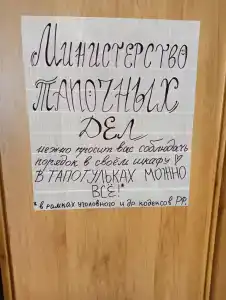 МИНИСТЕРСТВО
ТАПОЧНЫХ
ДЕЛ
нежно просит вас соблюдать
порядок в своём шкафу ♡
В ТАПОГУЛЬКАХ МОЖНО
ВСЁ!*
* в рамках уголовного и др. кодексов РФ.